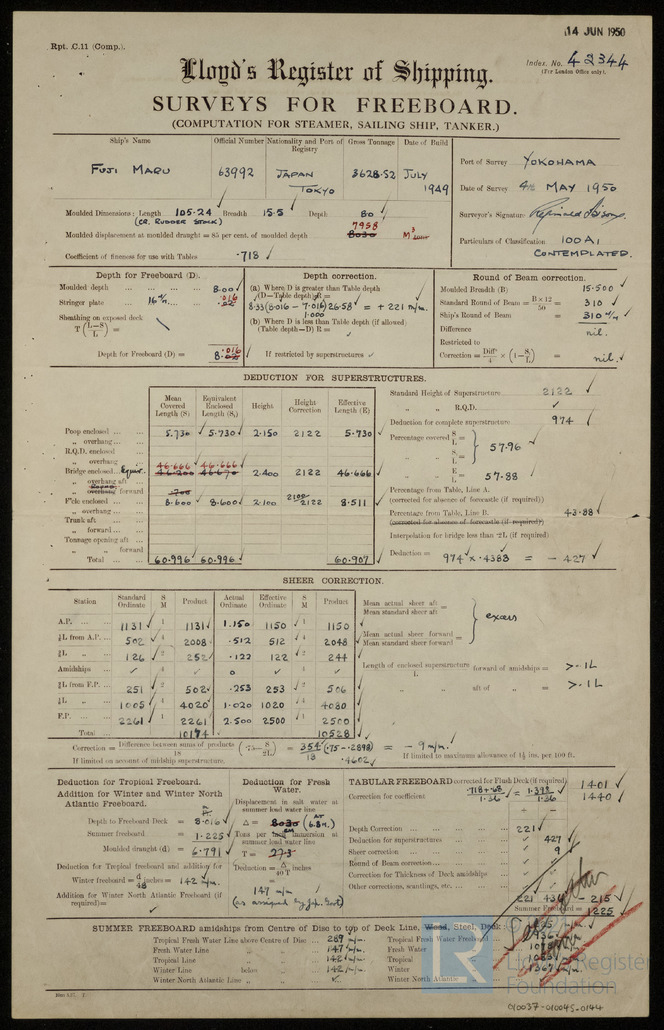 14 JUN 1950
Rpt. C.11 (Comp.).
Index. No. 42344
(For London Office only).
Lloyd's Register of Shipping.
SURVEYS FOR FREEBOARD.
(COMPUTATION FOR STEAMER, SAILING SHIP, TANKER.)
Ship's Name Official Number Nationality and Port of Registry Gross Tonnage Date of Build
FUJI MARU 63992 JAPAN TOKYO 3628.52 JULY 1949
Port of Survey YOKOHAMA
Date of Survey 4th MAY 1950
Surveyor's Signature
Particulars of Classification 100A1
CONTEMPLATED.
Moulded Dimensions: Length 105.24 Breadth 15.5 Depth 8.0
(CR. RUDDER STOCK)
7958
Moulded displacement at moulded draught = 85 per cent. of moulded depth 8030 M3
Coefficient of fineness for use with Tables .718
Depth for Freeboard (D).
Moulded depth 8.00
Stringer plate 16 m/m .016
Sheathing on exposed deck
T (L-S/L) =
Depth for Freeboard (D) = 8.016
Depth correction.
(a) Where D is greater than Table depth
(D-Table depth) R =
8.33(8.016 - 7.016) 26.58 = + 221 m/m.
1.000
(b) Where D is less than Table depth (if allowed)
(Table depth-D) R =
If restricted by superstructures
Round of Beam correction.
Moulded Breadth (B) 15.500
Standard Round of Beam = B×12/50 = 310
Ship's Round of Beam = 310 m/m
Difference nil.
Restricted to
Correction = Diff/4 × (1-S/L) = nil.
DEDUCTION FOR SUPERSTRUCTURES.
Mean Covered Length (S) Equivalent Enclosed Length (S₁) Height Height Correction Effective Length (E)
Poop enclosed 5.730 5.730 2.150 2122 5.730
„ overhang
R.Q.D. enclosed
„ overhang 46.666 46.666
Bridge enclosed Equiv. 46.200 46.670 2.400 2122 46.666
„ overhang forward .700
F'cle enclosed 8.600 8.600 2.100 2100/2122 8.511
„ overhang
Trunk aft
„ forward
Tonnage opening aft
„ „ forward
Total 60.996 60.996 60.907
Standard Height of Superstructure 2122
„ „ R.Q.D.
Deduction for complete superstructure 974
Percentage covered S/L =
„ „ S₁/L = 57.96
„ „ E/L = 57.88
Percentage from Table, Line A.
(corrected for absence of forecastle (if required))
Percentage from Table, Line B. 43.88
(corrected for absence of forecastle (if required))
Interpolation for bridge less than .2L (if required)
Deduction = 974 × .4383 = - 427
SHEER CORRECTION.
Station Standard Ordinate S M Product Actual Ordinate Effective Ordinate S M Product
A.P. 1131 1 1131 1.150 1150 1 1150
⅙L from A.P. 502 4 2008 .512 512 4 2048
⅓L „ 126 2 252 .122 122 2 244
Amidships 4 0 4
⅓L from F.P. 251 2 502 .253 253 2 506
⅙L „ 1005 4 4020 1.020 1020 4 4080
F.P. 2261 1 2261 2.500 2500 1 2500
Total 10174 10528
Mean actual sheer aft
Mean standard sheer aft =
excess
Mean actual sheer forward
Mean standard sheer forward =
Length of enclosed superstructure forward of amidships = >.1L
L
„ „ aft of „ = >.1L
Correction = Difference between sums of products/18 (.75 - S/2L) = 354/18 (.75-.2898) = - 9 m/m.
.4602
If limited on account of midship superstructure.
If limited to maximum allowance of 1½ ins. per 100 ft.
Deduction for Tropical Freeboard.
Addition for Winter and Winter North
Atlantic Freeboard.
Depth to Freeboard Deck = 8.016
Summer freeboard = 1.225
Moulded draught (d) = 6.791
Deduction for Tropical freeboard and addition for
Winter freeboard = d/48 = 142 m/m.
Addition for Winter North Atlantic Freeboard (if
required) =
Deduction for Fresh
Water.
Displacement in salt water at
summer load water line
Δ = 8030 (AT 6.8m.)
Tons per immersion at
summer load water line
T = 27.3
Deduction = Δ/40 T
147 m/m
(as assigned by Jap. Govt)
TABULAR FREEBOARD corrected for Flush Deck (if required) 1401
Correction for coefficient .718+.68/1.36 = 1.398/1.36 1440
+ -
Depth Correction 221
Deduction for superstructures 427
Sheer correction 9
Round of Beam correction
Correction for Thickness of Deck amidships
Other corrections, scantlings, etc.
221 436 - 215
Summer Freeboard = 1225
SUMMER FREEBOARD amidships from Centre of Disc to top of Deck Line, Wood, Steel, Deck:
Tropical Fresh Water Line above Centre of Disc 289 m/m.
Fresh Water Line „ „ 147 m/m.
Tropical Line „ „ 142 m/m.
Winter Line below „ 142 m/m.
Winter North Atlantic Line „ „
Tropical Fresh Water Freeboard
Fresh Water „
Tropical „
Winter „ 1367 m/m.
Winter North Atlantic „
Lloyd's Register
Foundation
010037-010045-0144